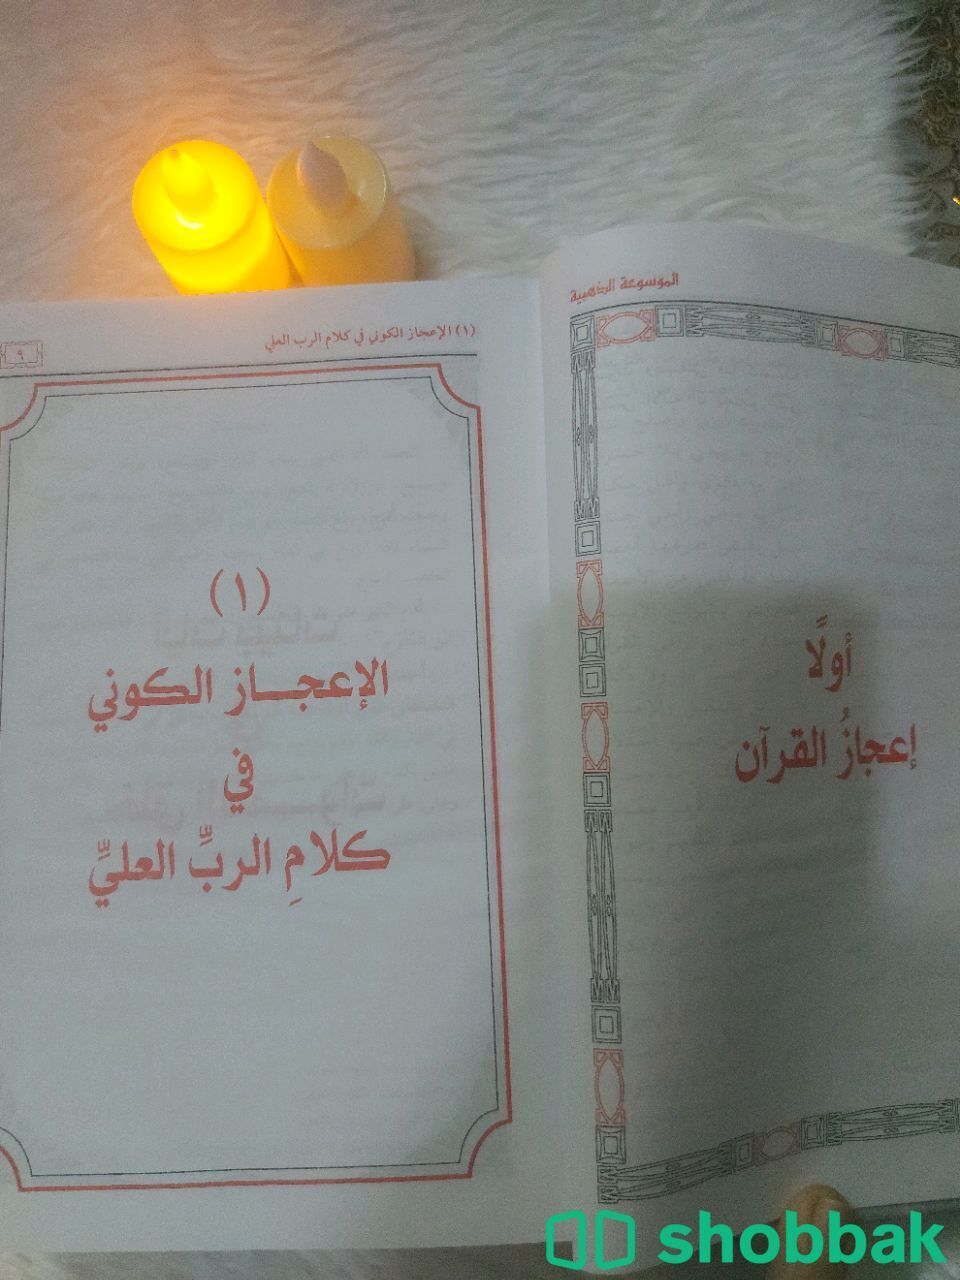 الموسوعة الذهبية
أولًا
إعجازُ القرآن
(١) الإعجاز الكوني في كلام الرب العلي
٩
(١)
الإعجـاز الكوني
في
كلامِ الربِّ العليِّ
shobbak